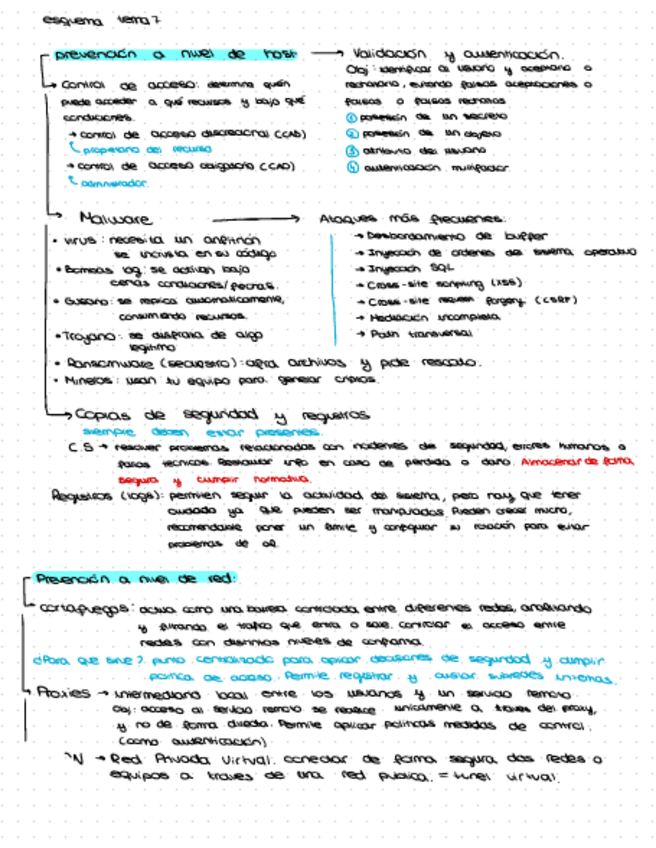 esquema tema 7
prevención a nivel de host → Validación y autenticación.
Obj: identificar al usuario y aceptarlo o
rechazarlo, evitando falsas aceptaciones o
falsos rechazos
① posesión de un secreto
② posesión de un objeto
③ atributo del usuario
④ autenticación multifactor
→ Control de acceso: determina quién
puede acceder a qué recursos y bajo qué
condiciones.
→ control de acceso discrecional (CAD)
propietario del recurso
→ control de acceso obligatorio (CAO)
administrador
→ Malware → Ataques más frecuentes:
• virus: necesita un anfitrión
se incrusta en su código
• Bombas log: se activan bajo
ciertas condiciones/fechas.
• Gusano: se replica automaticamente,
consumiendo recursos.
• Troyano: se disfraza de algo
legítimo
• Ransomware (secuestro): cifra archivos y pide rescate.
• Mineros: usan tu equipo para generar criptos.
→ Desbordamiento de buffer
→ Inyección de ordenes del sistema operativo
→ Inyección SQL
→ Cross-site scripting (XSS)
→ Cross-site request forgery (CSRF)
→ Mediación incompleta
→ Path transversal
→ Copias de seguridad y registros
siempre deben estar presentes.
C.S → resolver problemas relacionados con incidentes de seguridad, errores humanos o
fallos técnicos. Restaurar info en caso de pérdida o daño. Almacenar de forma
segura y cumplir normativa.
Registros (logs): permiten seguir la actividad del sistema, pero hay que tener
cuidado ya que pueden ser manipulados. Pueden crecer mucho,
recomendable poner un límite y configurar su rotación para evitar
problemas de
Prevención a nivel de red:
cortafuegos: actúa como una barrera controlada entre diferentes redes, analizando
y filtrando el tráfico que entra o sale. controlar el acceso entre
redes con distintos niveles de confianza.
¿Para que sirve? punto centralizado para aplicar decisiones de seguridad y cumplir
política de acceso. Permite registrar y aislar subredes internas.
→ Proxies → intermediario local entre los usuarios y un servicio remoto.
Obj: acceso al servicio remoto se realice unicamente a traves del proxy,
y no de forma directa. Permite aplicar politicas medidas de control.
(como autenticación)
N → Red Privada Virtual. conectar de forma segura dos redes o
equipos a traves de una red publica. = tunel virtual.